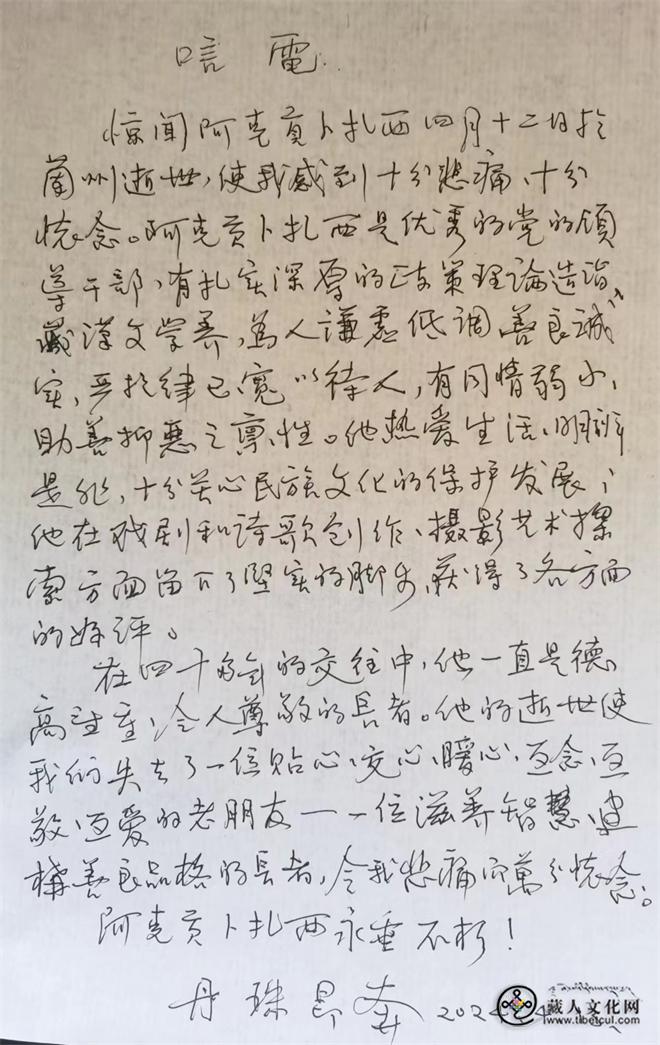 唁電
惊闻阿克贡卜扎西四月十二日於
蘭州逝世，使我感到十分悲痛、十分
怀念。阿克贡卜扎西是优秀的党的领
導干部，有扎实深厚的政策理論造诣、
藏漢文学养，為人謙虚低调、善良诚
实，严於律已宽以待人，有同情弱小、
助善抑恶之禀性。他热爱生活、明辨
是非，十分关心民族文化的保护发展；
他在戏剧和诗歌创作、摄影艺术探
索方面留下了坚实的脚步，获得了各方面
的好评。
在四十多年的交往中，他一直是德
高望重、令人尊敬的長者。他的逝世使
我们失去了一位贴心、交心、暖心，互念、互
敬、互爱的老朋友——一位滋养智慧、建
構善良品格的長者，令我悲痛而萬分怀念。
阿克贡卜扎西永垂不朽！
丹珠昂奔 2024.4
藏人文化网
www.tibetcul.com